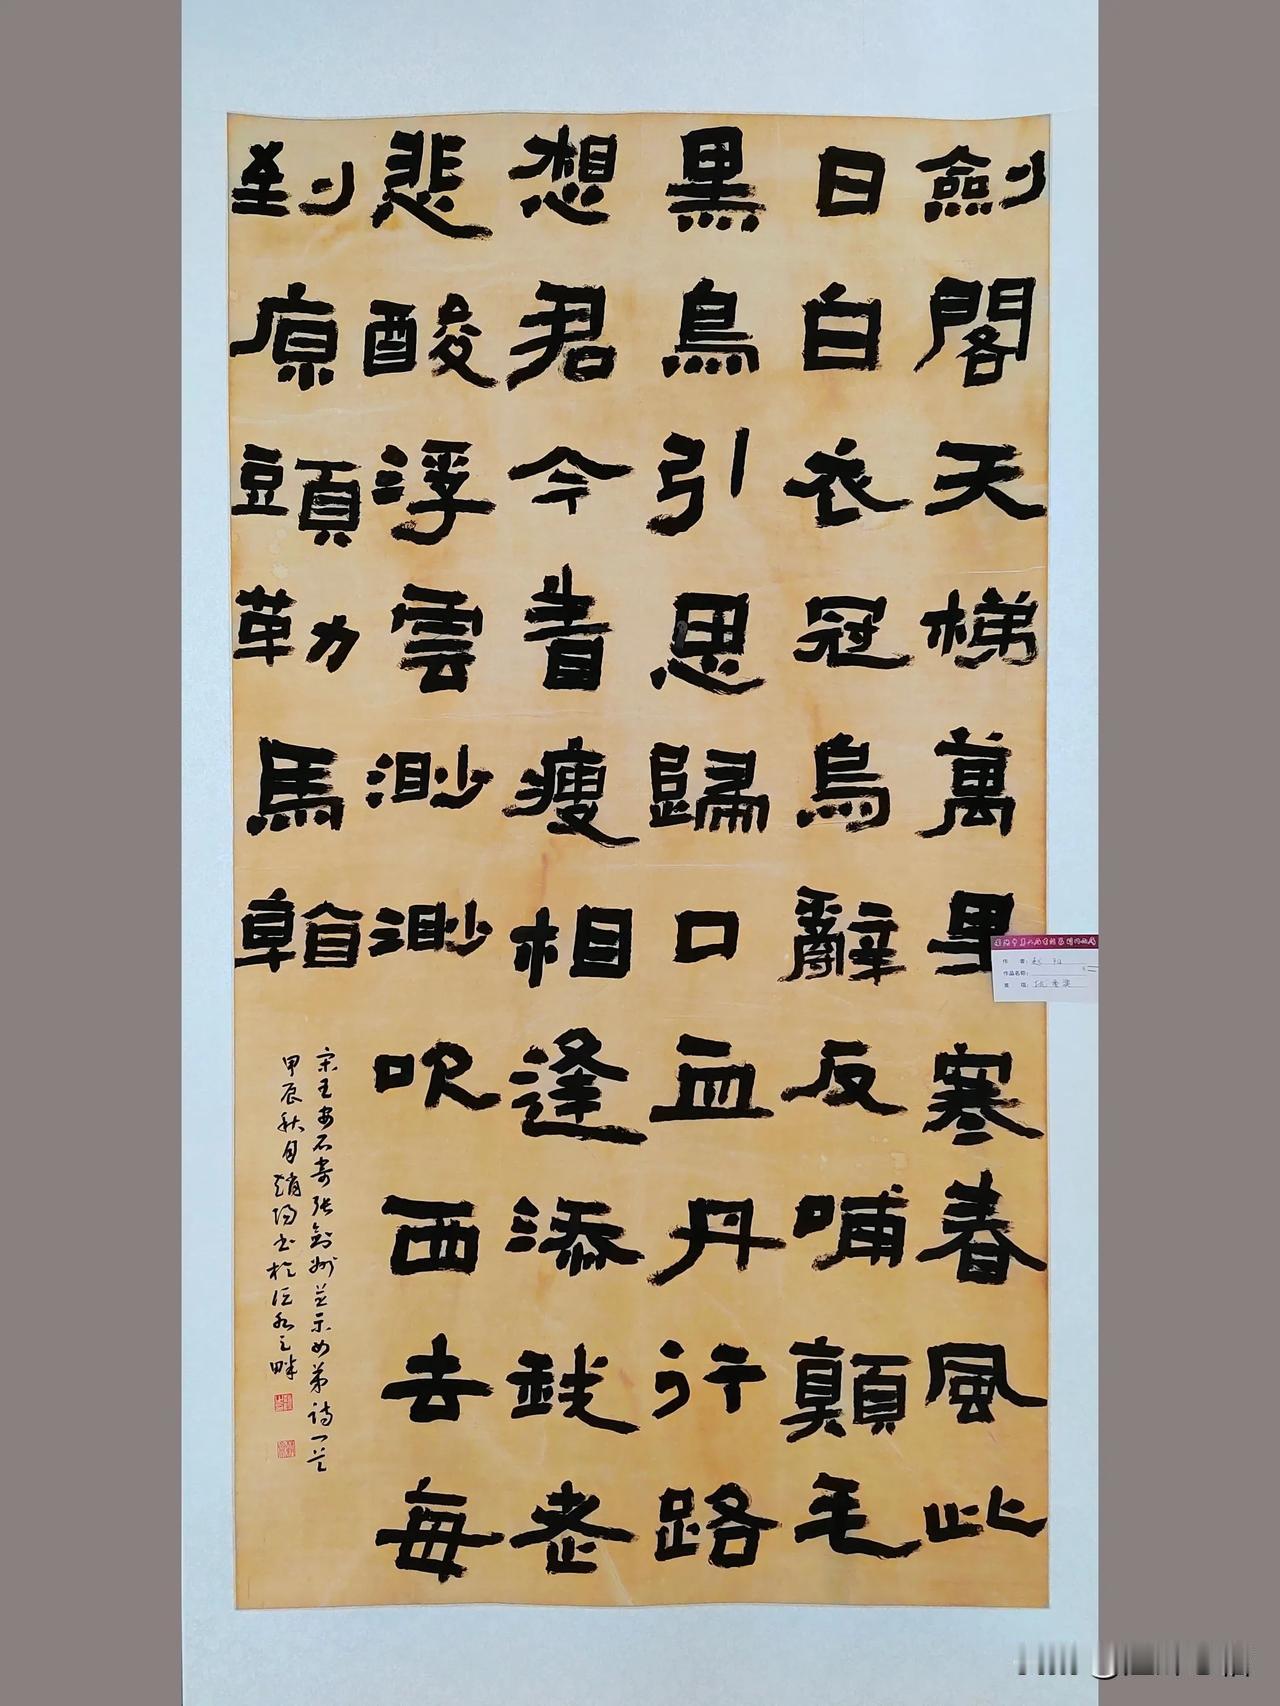 劍閣天梯萬里寒春風此
日白衣冠烏辭反哺顛毛
黑鳥引思歸口血丹行路
想君今瘦相逢添我老
悲酸浮雲渺渺吹西去每
到原頭勒馬鞍
宋王安石寄張劍州並示女弟詩一首
甲辰秋月趙陽書於水之畔
作 者：赵阳
作品名称：
奖 项：优秀奖